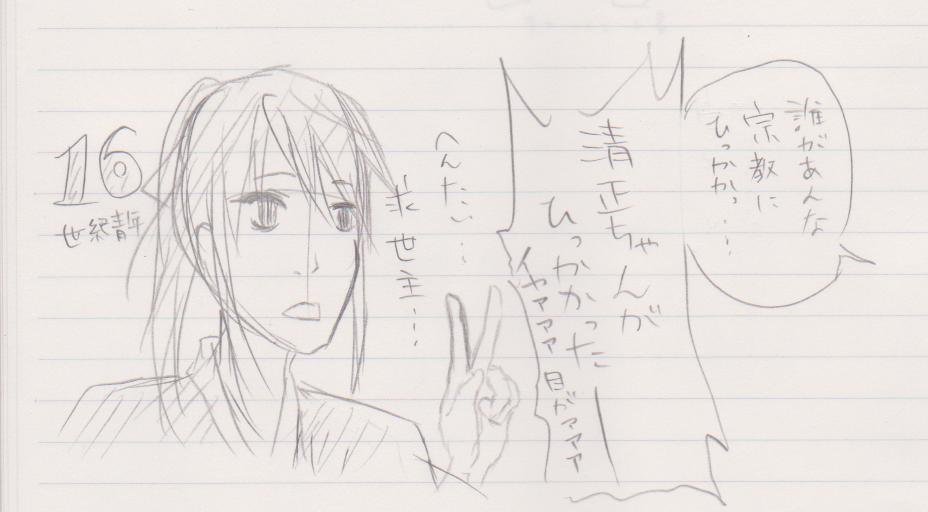 誰があんな
宗教に
ひっかかっ・・・
清正ちゃんが
ひっかかったー
イヤァァァ目がァァァ
へんたい・・・
求世主・・・
16
世紀青年